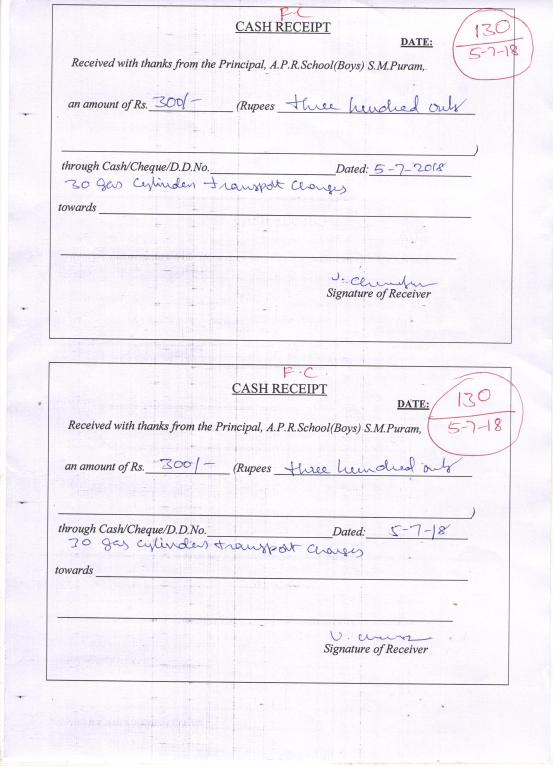 F.C
CASH RECEIPT
130
DATE:
5-7-18
Received with thanks from the Principal, A.P.R.School(Boys) S.M.Puram,
an amount of Rs. 300/- (Rupees three hundred only
)
through Cash/Cheque/D.D.No. Dated: 5-7-2018
30 gas cylinders transport charges
towards
Signature of Receiver
F.C.
CASH RECEIPT
130
DATE:
5-7-18
Received with thanks from the Principal, A.P.R.School(Boys) S.M.Puram,
an amount of Rs. 300/- (Rupees three hundred only
)
through Cash/Cheque/D.D.No. Dated: 5-7-18
30 gas cylinders transport charges
towards
Signature of Receiver